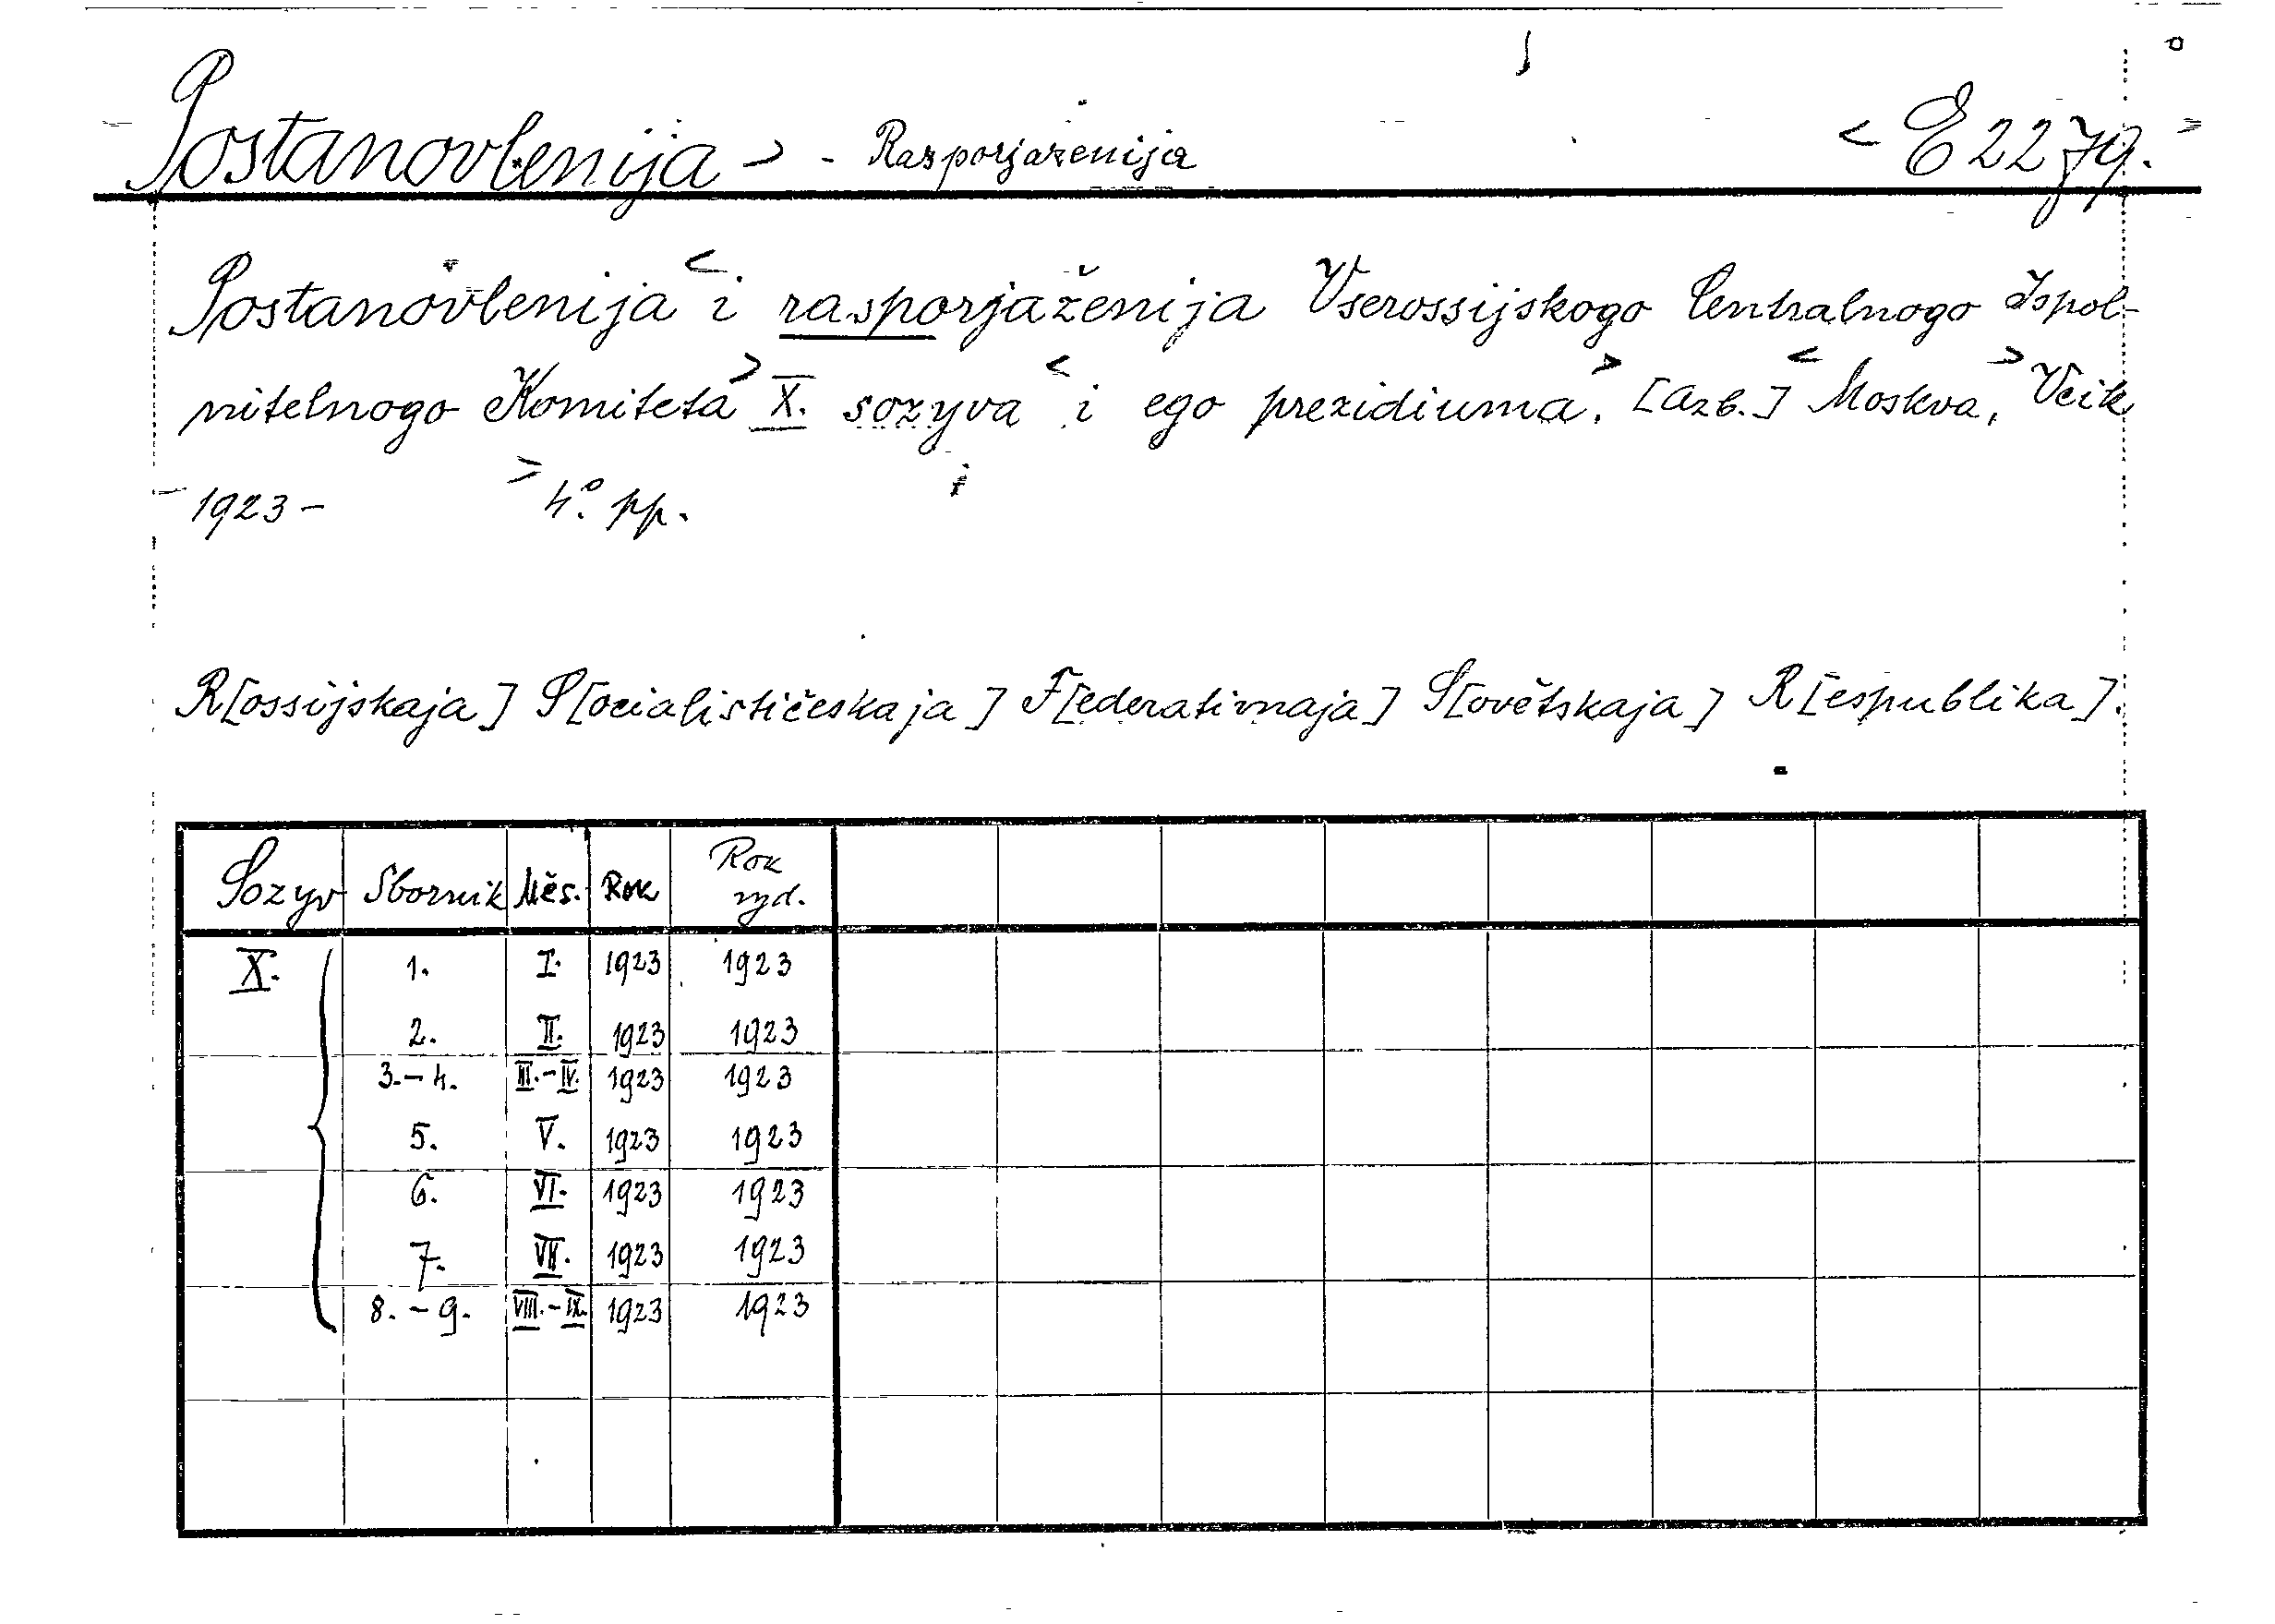 Postanovlenija > - Rasporjaženija < E 2279. >
Postanovlenija < i rasporjaženija Vserossijskogo Centralnogo Ispol-
nitelnogo Komiteta > X. sozyva < i ego prezidiuma. > [Azb.] < Moskva, > Vcik
1923 - > 4°. pp.
R[ossijskaja] S[ocialističeskaja] F[ederativnaja] S[ovětskaja] R[espublika].
Sozyv Sborník Měs. Rok Rok vyd.
X. 1. I. 1923 1923
2. II. 1923 1923
3. - 4. III. - IV. 1923 1923
5. V. 1923 1923
6. VI. 1923 1923
7. VII. 1923 1923
8. - 9. VIII. - IX. 1923 1923